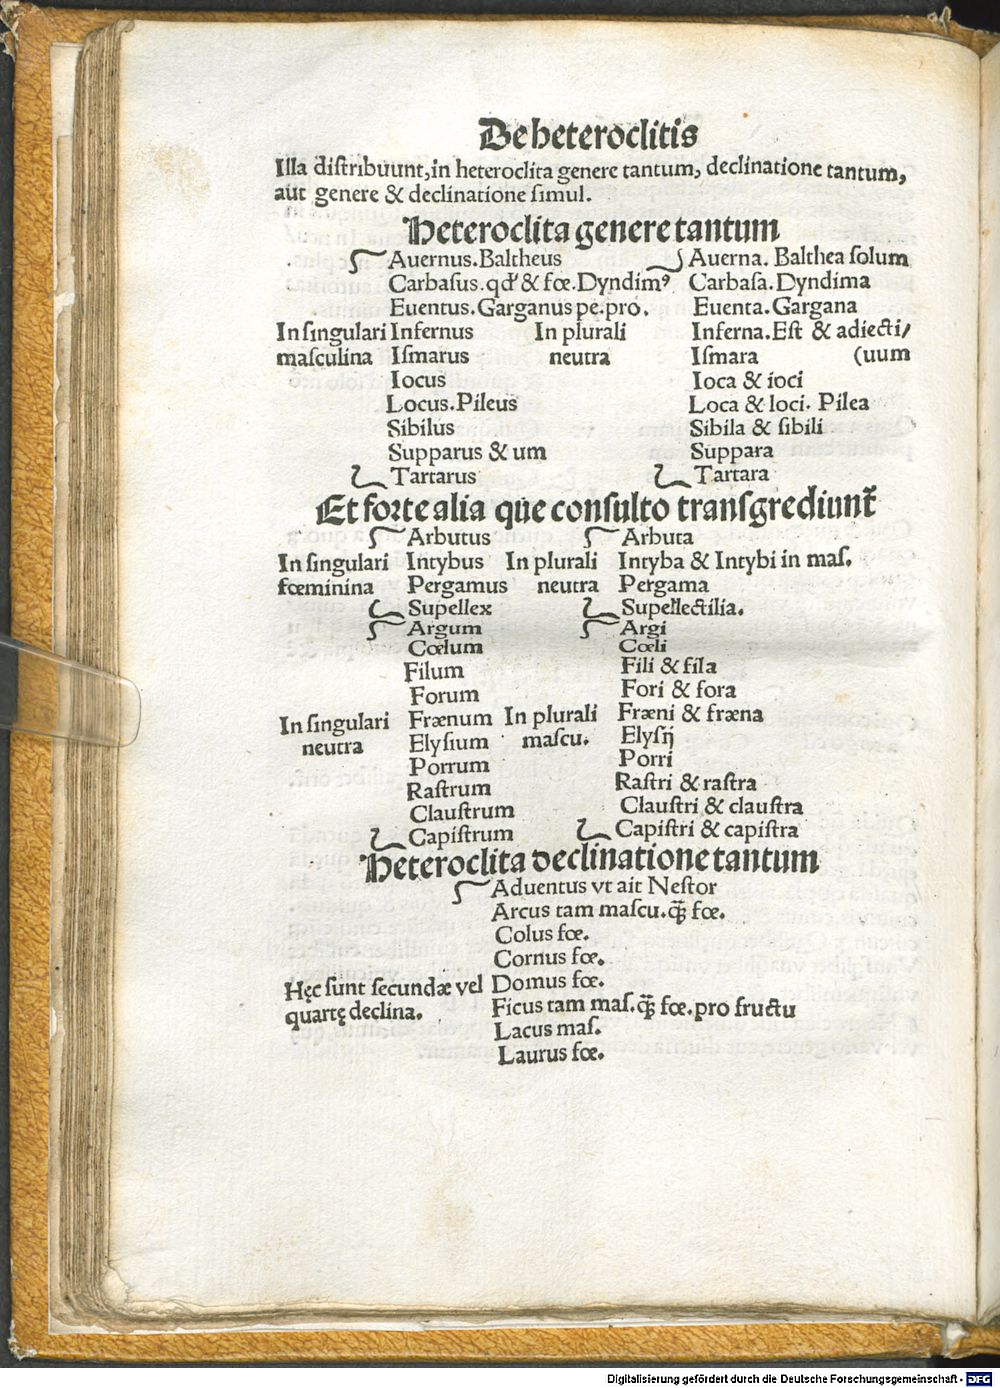 De heteroclitis
Illa distribuunt, in heteroclita genere tantum, declinatione tantum,
aut genere & declinatione simul.
Heteroclita genere tantum
Auernus. Baltheus Auerna. Balthea solum
Carbasus. qđ & fœ. Dyndimꝰ Carbasa. Dyndima
Euentus. Garganus pe. pro. Euenta. Gargana
In singulari Infernus In plurali Inferna. Est & adiecti/
masculina Ismarus neutra Ismara (uum
Iocus Ioca & ioci
Locus. Pileus Loca & loci. Pilea
Sibilus Sibila & sibili
Supparus & um Suppara
Tartarus Tartara
Et forte alia que consulto transgrediunt̃
Arbutus Arbuta
In singulari Intybus In plurali Intyba & Intybi in mas.
fœminina Pergamus neutra Pergama
Supellex Supellectilia.
Argum Argi
Cœlum Cœli
Filum Fili & fila
Forum Fori & fora
In singulari Frænum In plurali Fræni & fræna
neutra Elysium mascu. Elysij
Porrum Porri
Rastrum Rastri & rastra
Claustrum Claustri & claustra
Capistrum Capistri & capistra
Heteroclita declinatione tantum
Aduentus vt ait Nestor
Arcus tam mascu. q̃ fœ.
Colus fœ.
Cornus fœ.
Hęc sunt secundæ vel Domus fœ.
quartę declina. Ficus tam mas. q̃ fœ. pro fructu
Lacus mas.
Laurus fœ.
Digitalisierung gefördert durch die Deutsche Forschungsgemeinschaft - DFG